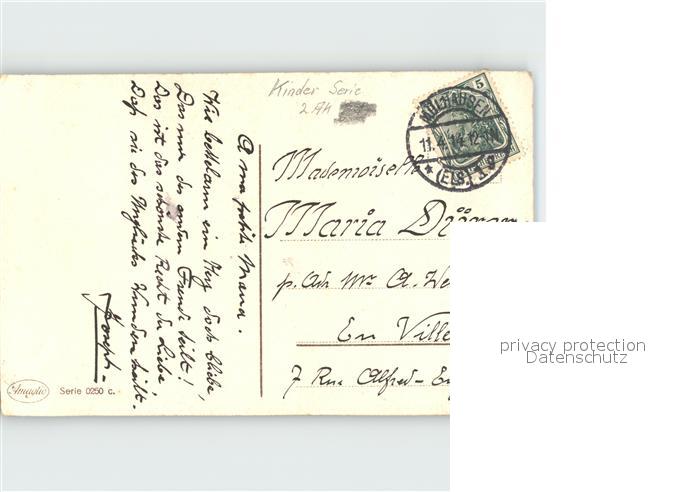 Kinder Serie
2 Ak
5
MÜLHAUSEN
11.4.14.12-1N
* (ELS.) 1 g
Mademoiselle
Maria
p. Adr Mr A. We
En Ville
7 Rue Alfred-En
A ma petite Maria.
Wie bettelarm ein Herz doch bliebe,
Das nur der andern Freude teilt!
Das ist das schönste Recht der Liebe,
Daß sie des Unglücks Wunden heilt.
Joseph-
Amag
Serie 0250 c.
privacy protection
Datenschutz